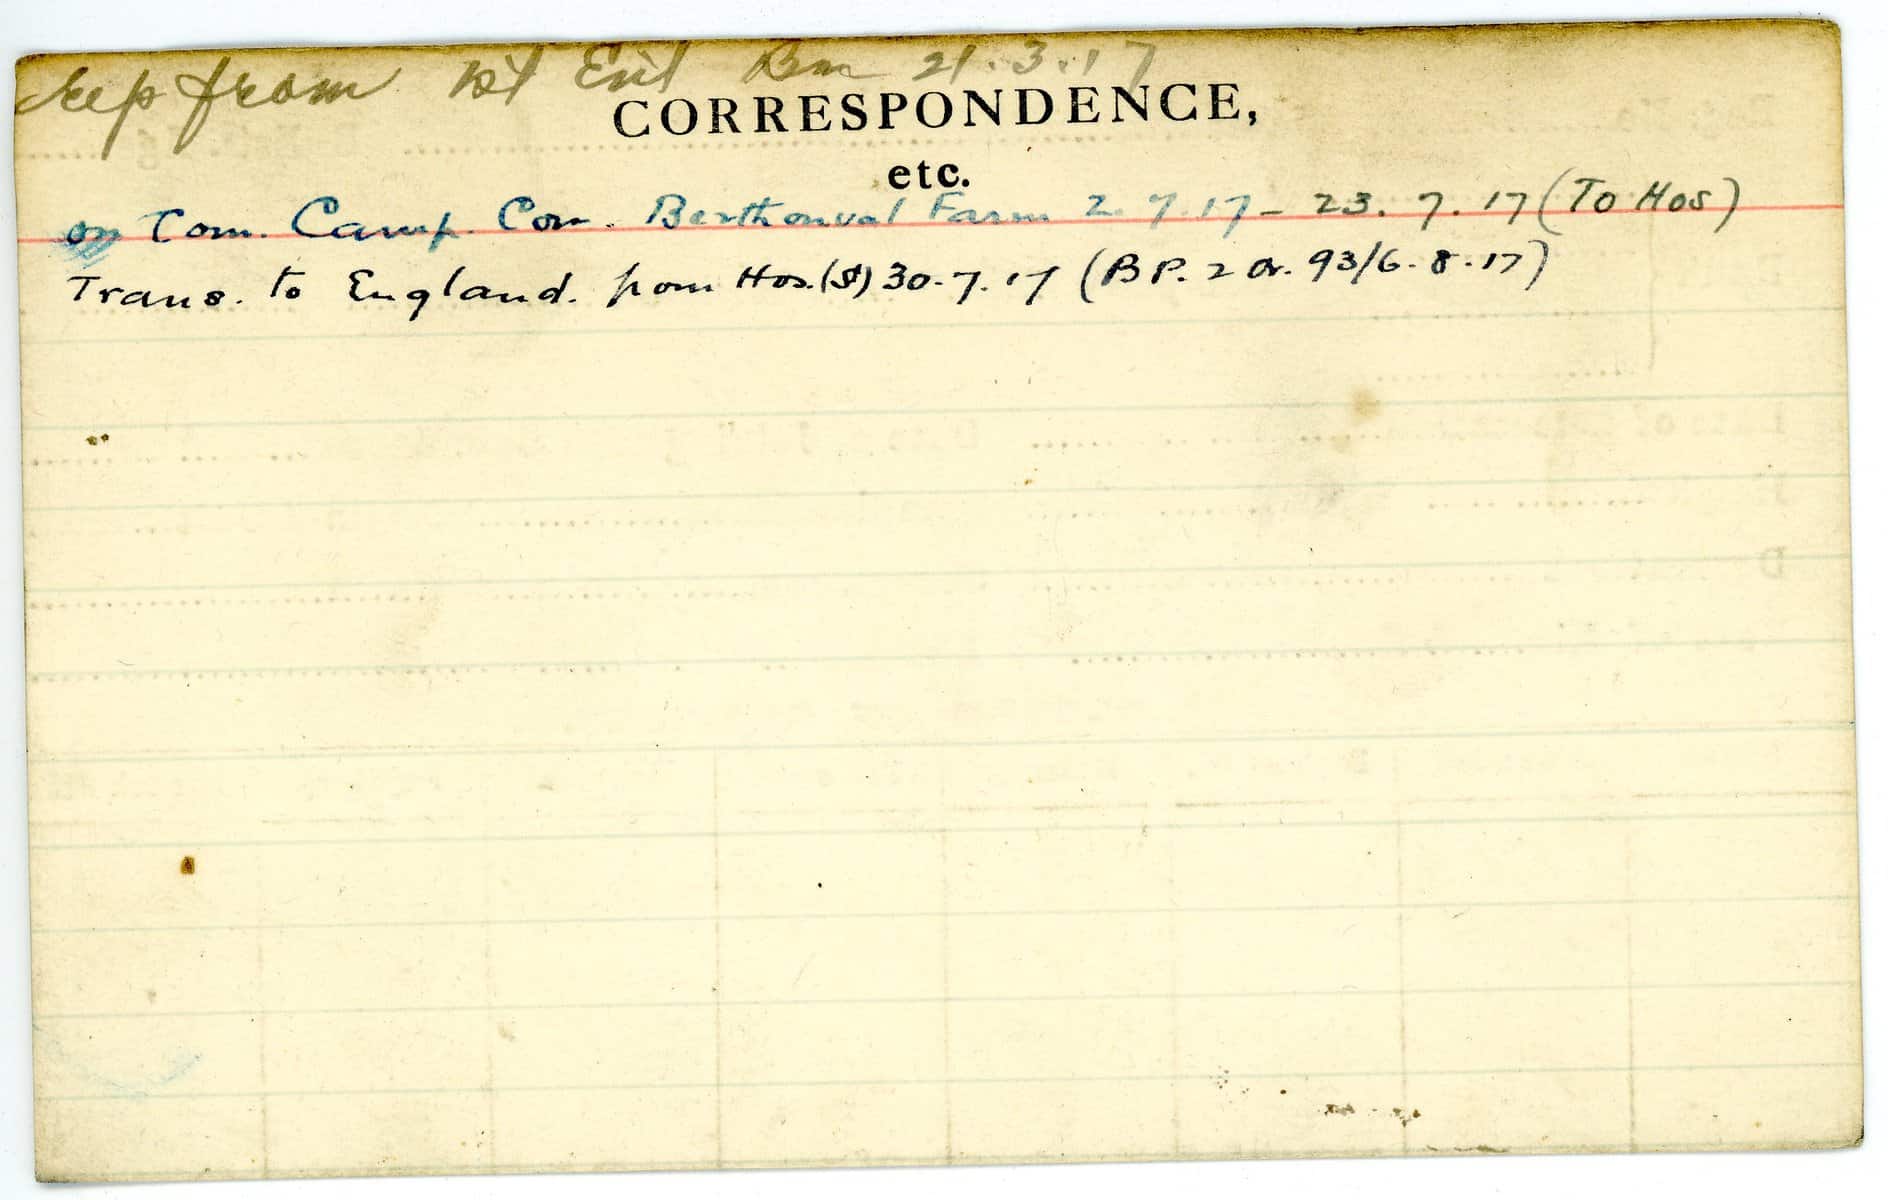 from 1st Ent Bn 21.3.17
CORRESPONDENCE,
etc.
on Tom. Camp. Com. Berthonval Farm 2.7.17 - 23.7.17 (To Hos)
Trans. to England. from Hos.(S) 30.7.17 (BP. 2 Or. 93/6.8.17)